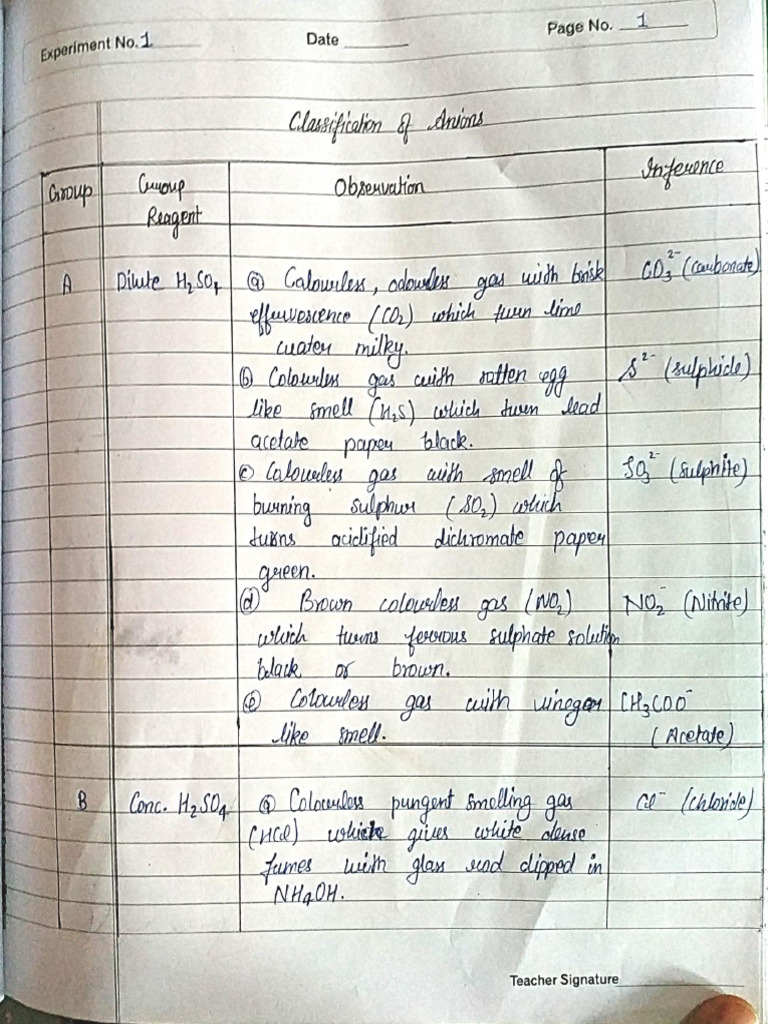 Experiment No. 1 Date Page No. 1
Classification of Anions
Group Group Reagent Observation Inference
A Dilute H₂SO₄ (a) Colourless, odourless gas with brisk CO₃²⁻ (carbonate)
effervescence (CO₂) which turn lime
water milky.
(b) Colourless gas with rotten egg S²⁻ (sulphide)
like smell (H₂S) which turn lead
acetate paper black.
(c) Colourless gas with smell of SO₃²⁻ (Sulphite)
burning sulphur (SO₂) which
turns acidified dichromate paper
green.
(d) Brown colourless gas (NO₂) NO₂⁻ (Nitrite)
which turns ferrous sulphate solution
black or brown.
(e) Colourless gas with vinegar CH₃COO⁻
like smell. (Acetate)
B Conc. H₂SO₄ (a) Colourless pungent smelling gas Cl⁻ (chloride)
(HCl) which gives white dense
fumes with glass rod dipped in
NH₄OH.
Teacher Signature